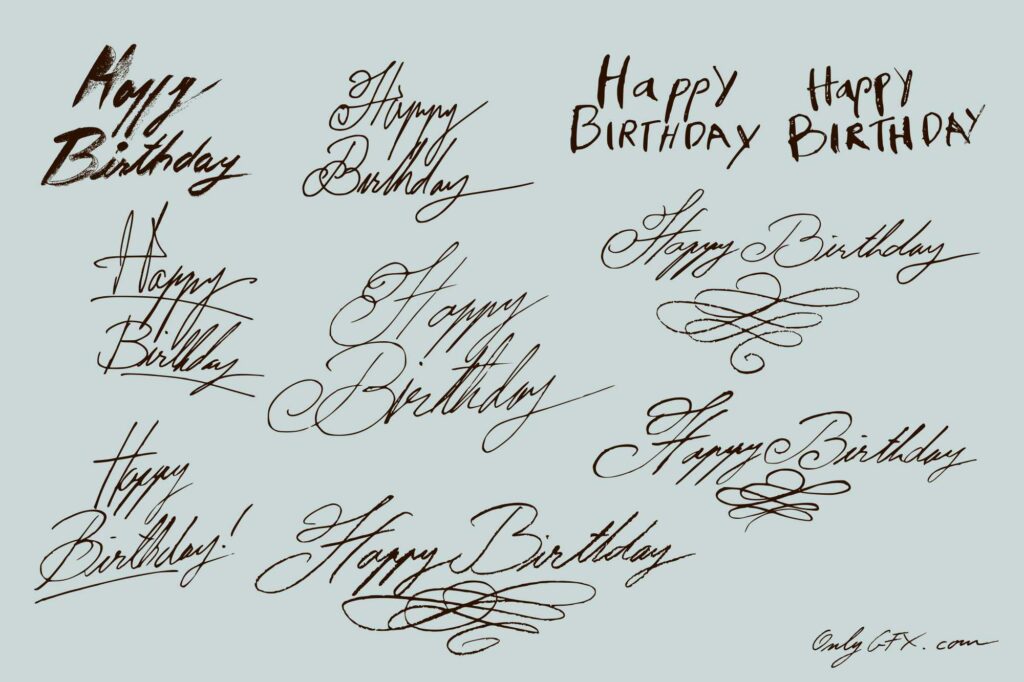 Happy
Birthday
Happy
Birthday
Happy
BIRTHDAY
Happy
BIRTHDAY
Happy
Birthday
Happy
Birthday
Happy Birthday
Happy
Birthday!
Happy Birthday
Happy Birthday
OnlyGFX.com